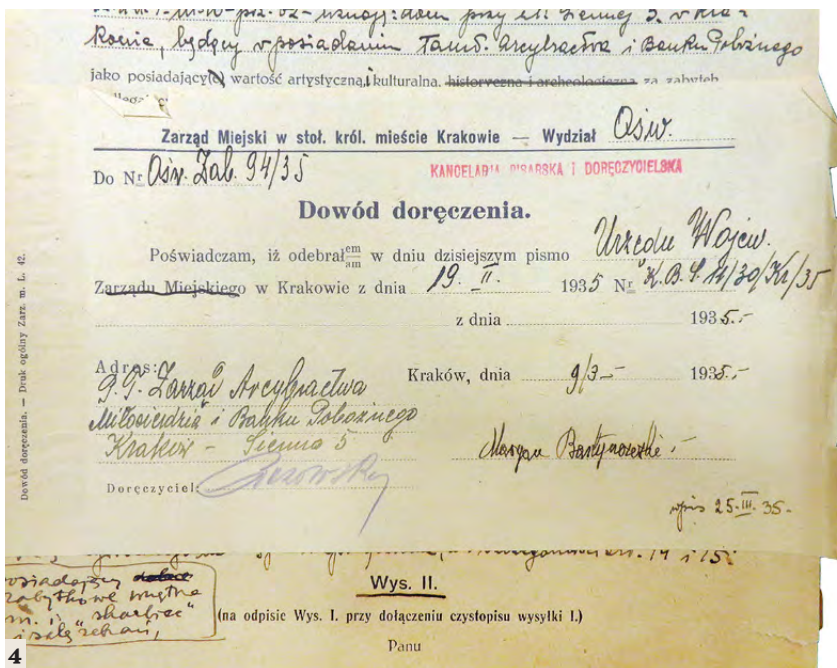 przy ul. Siennej 5. w Kra-
kowie, będący w posiadaniu Tamt. Arcybractwa i Banku Pobożnego
jako posiadający(e) wartość artystyczną, i kulturalną, historyczną i archeologiczną za zabytek
Zarząd Miejski w stoł. król. mieście Krakowie — Wydział Ośw.
Do Nr Ośw. Zab. 94/35
KANCELARIA PISARSKA I DORĘCZYCIELSKA
Dowód doręczenia.
Poświadczam, iż odebrał em/am w dniu dzisiejszym pismo Urzędu Wojew.
Zarządu Miejskiego w Krakowie z dnia 19. II. 1935 Nr K.B.S. 14/30/Kr/35
z dnia 1935.-
Adres:
P.T. Zarząd Arcybractwa
Miłosierdzia i Banku Pobożnego
Kraków - Sienna 5
Kraków, dnia 9/3 - 1935.-
Doręczyciel:
wpis 25.III.35.-
Dowód doręczenia. — Druk ogólny Zarz. m. L. 42.
posiadający
zabytkowe wnętrza
m. i. "skarbiec"
i salę "zebrań",
Wys. II.
(na odpisie Wys. I. przy dołączeniu czystopisu wysyłki I.)
Panu
4